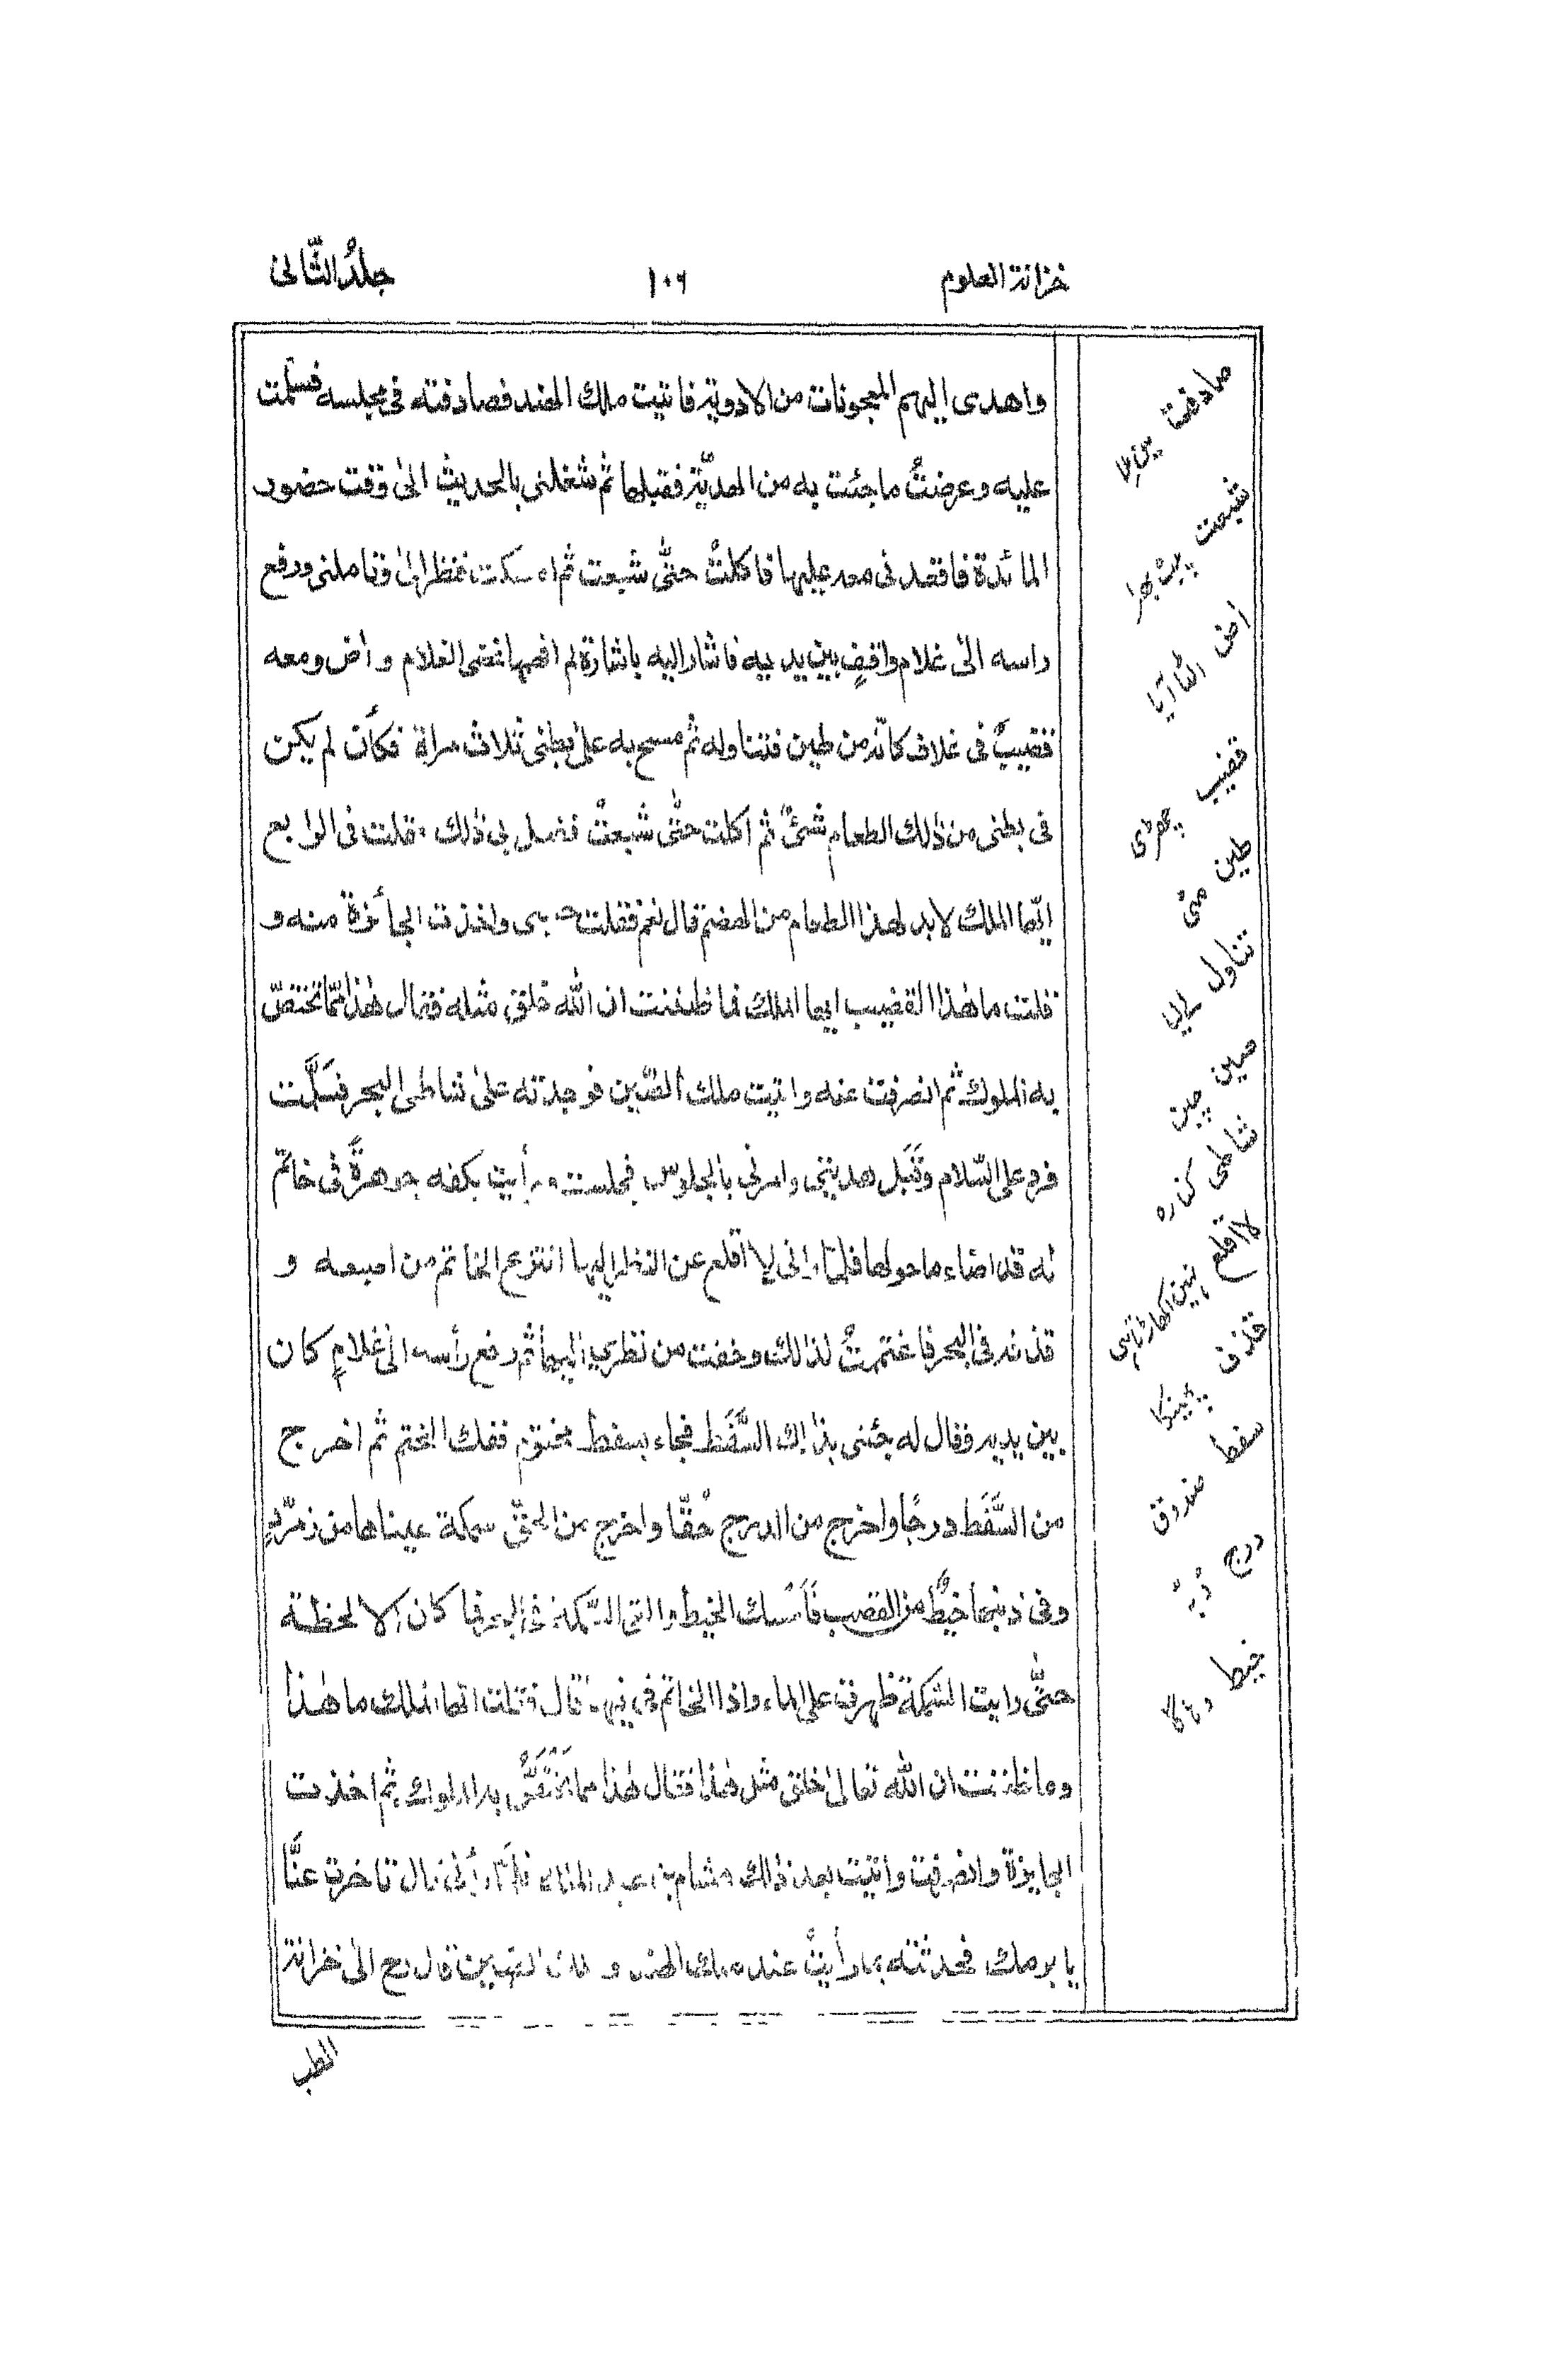 خزانة العلوم ۱۰۶ جلدُ الثّانی
واهدى اليهم المعجونات من الادوية فاتيت ملك الهند فصادفته فى مجلسه فسلّمت
عليه وعرضتُ ما جئت به من الهديّة فقبلها ثم شغلنى بالحديث الىٰ وقت حضور
المائدة فاقعدنى معه عليها فاكلتُ حتّى شبعت ثم امسكت فنظر الىّ وتاملنى ورفع
راسه الىٰ غلام واقفٍ بين يديه فاشار اليه باشارة لم افهمها فمضى الغلام واٰض ومعه
قضيبٌ فى غلاف كانّه من طين فتناوله ثم مسح به علىٰ بطنى ثلاث مراة فكأن لم يكن
فى بطنى من ذٰلك الطعام شئٌ ثم اكلت حتّٰى شبعتُ ففعل بى ذٰلك فقلت فى الرابع
ايّها الملك لابد لهذا الطعام من الهضم قال نعم فقلت واخذت الجائزة منه و
قلت ما هٰذا القضيب ايها الملك فما ظننت ان الله خلق مثله فقال هٰذا ممّا تختصّ
به الملوك ثم انصرفت عنه واتيت ملك الصّين فوجدته علىٰ شاطى البحر فسَلَّمت
فرد على السّلام وقَبَل هديتى وامرنى بالجلوس فجلست ورأيت بكفه جوهرةً فى خاتم
له قد اضاء ما حولها فلمّا رانى لا اقلع عن النظر اليها انتزع الخاتم من اصبعه و
قذفه فى البحر فاغتممتُ لذالك وخفت من نظرى اليها ثم رفع رأسه الىٰ غلامٍ كان
بين يديه وقال له جئنى بذالك السَّفَط فجاء بسفط مختوم ففك الختم ثم اخرج
من السَّفَط درجًا واخرج من الدرج حُقّا واخرج من الحقّ سمكة عيناها من زمرّدٍ
وفى ذنبها خيطٌ من القصب فَاَمْسك الخيط والقى السَّمكة فى البحر فما كان الا لحظة
حتّٰى رايت السّمكة ظهرت على الماء واذا الخاتم فى فيها قال فقلت ايها الملك ما هٰذا
وما ظننت ان الله تعالىٰ خلق مثل هٰذا فقال هٰذا مما تَخْتَصُّ به الملوك ثم اخذت
الجايزة وانصرفت واتيت بعد ذٰلك هشام بن عبد الملك فلَمّا رأنى قال تاخرت عنَّا
يا برمك فحدثته بما رأيتُ عند ملك الهند و ملك الصين قال رح الىٰ خزانة
الطب
صادفت
شبعت پیٹ بھرا
اٰض
قضیب چھڑی
طین مٹی
تناول لے لیا
صین چین
شاطی کنارہ
لا اقلع
قذف پھینکا
سفط صندوق
درج ڈبّہ
خیط دھاگا